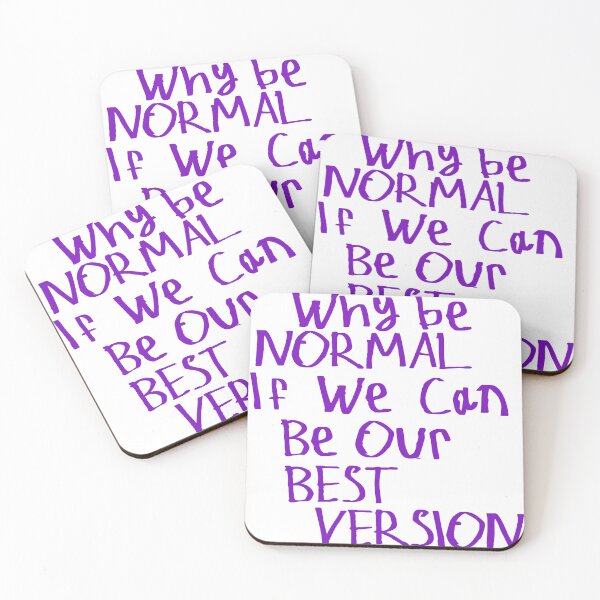 Why be
NORMAL
If We Ca
Why be
NORMAL
If We Can
Be Our
BEST
Why be
NORMAL
If We Can
Be Our
BEST
VER
Why be
NORMAL
If We Can
Be Our
BEST
VERSION